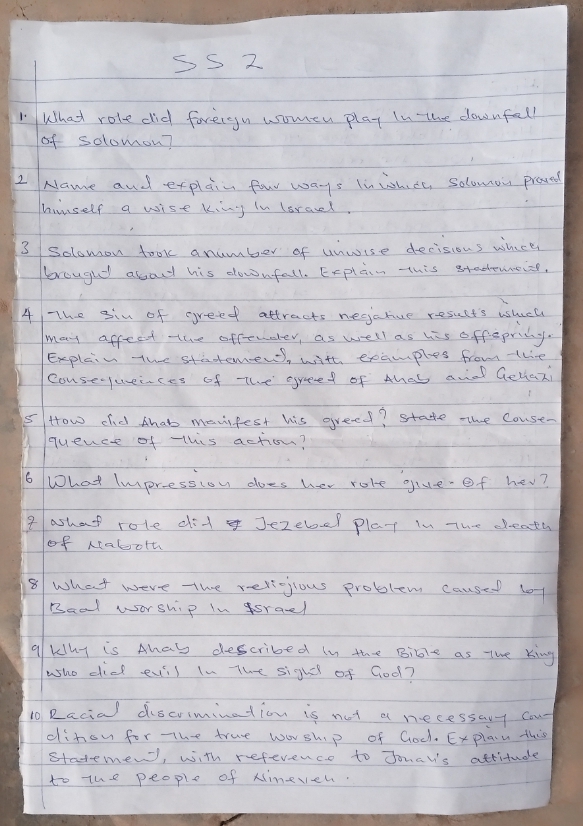 SS 2
1. What role did foreign women play in the downfall
of Solomon?
2 Name and explain four ways in which Solomon proved
himself a wise king in Israel.
3 Solomon took a number of unwise decisions which
brought about his downfall. Explain this statement.
4 The sin of greed attracts negative results which
may affect the offender, as well as his offspring.
Explain the statement, with examples from the
Consequences of the greed of Ahab and Gehazi
5 How did Ahab manifest his greed? State the Conse-
quence of this action?
6 What Impression does her role give. Of her?
7 What role did Jezebel play in the death
of Naboth
8 What were the religious problem caused by
Baal worship in Israel
9 Why is Ahab described in the Bible as the King
who did evil in the sight of God?
10 Racial discrimination is not a necessary con-
dition for the true worship of God. Explain this
Statement, with reference to Jonah's attitude
to the people of Nineveh.